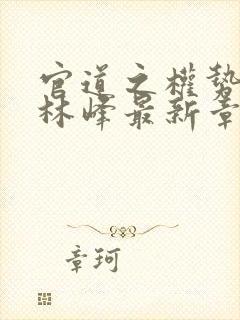 官道之權勢
林峰最新章
章珂